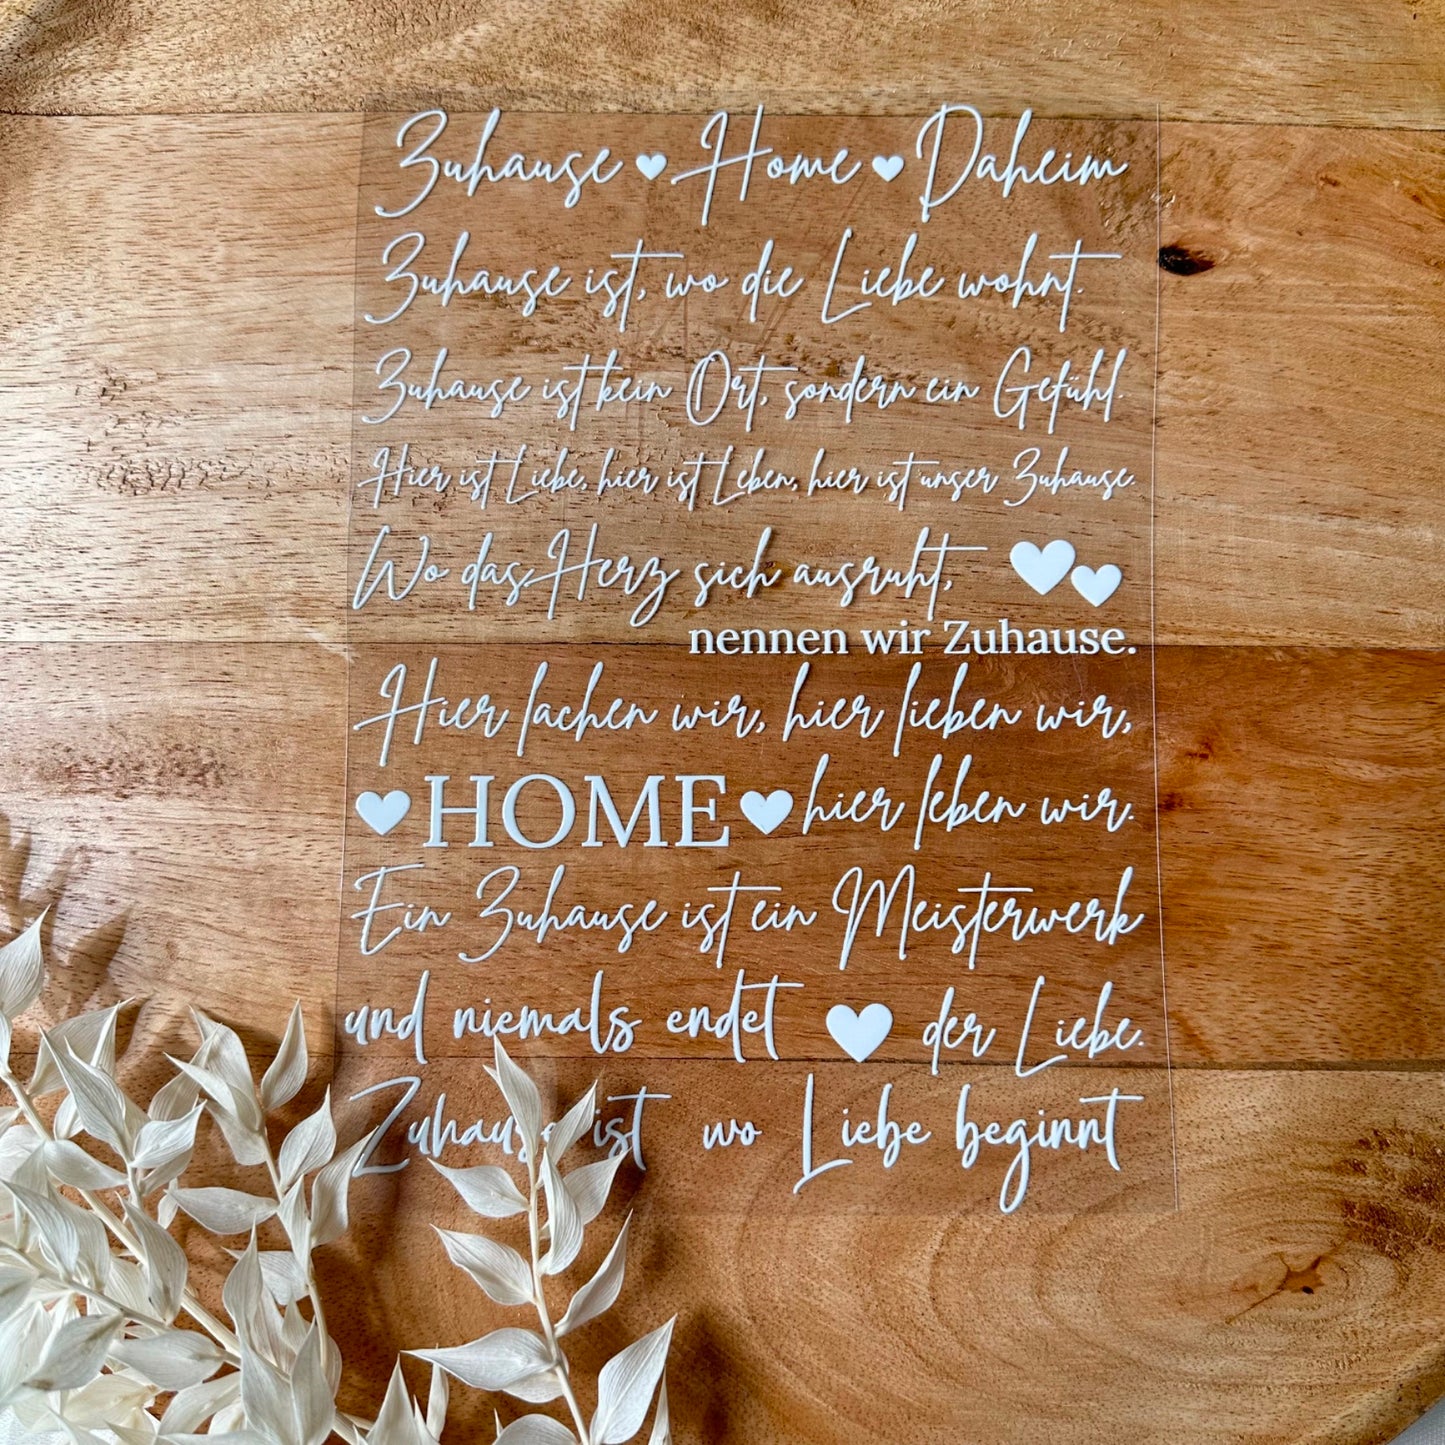 Zuhause ♥ Home ♥ Daheim
Zuhause ist, wo die Liebe wohnt.
Zuhause ist kein Ort, sondern ein Gefühl.
Hier ist Liebe, hier ist Leben, hier ist unser Zuhause.
Wo das Herz sich ausruht,
nennen wir Zuhause.
Hier lachen wir, hier lieben wir,
♥ HOME ♥ hier leben wir.
Ein Zuhause ist ein Meisterwerk
und niemals endet ♥ der Liebe.
Zuhause ist wo Liebe beginnt